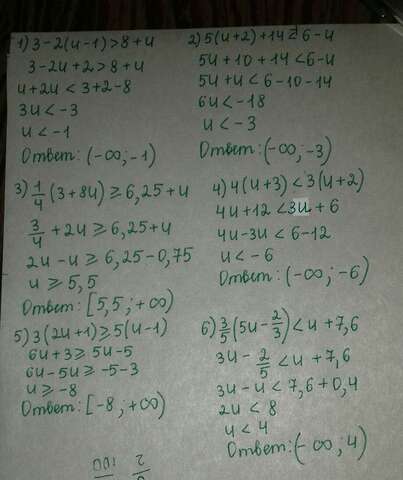 1) 3-2(u-1)>8+u
3-2u+2>8+u
u+2u<3+2-8
3u<-3
u<-1
Ответ: (-∞;-1)
2) 5(u+2)+14 6-u
5u+10+14<6-u
5u+u<6-10-14
6u<-18
u<-3
Ответ: (-∞;-3)
3) 1/4(3+8u)≥6,25+u
3/4+2u≥6,25+u
2u-u≥6,25-0,75
u≥5,5
Ответ: [5,5;+∞)
4) 4(u+3)<3(u+2)
4u+12<3u+6
4u-3u<6-12
u<-6
Ответ: (-∞;-6)
5) 3(2u+1)≥5(u-1)
6u+3≥5u-5
6u-5u≥-5-3
u≥-8
Ответ: [-8;+∞)
6) 3/5(5u-2/3)<u+7,6
3u-2/5<u+7,6
3u-u<7,6+0,4
2u<8
u<4
Ответ: (-∞;4)
100
2